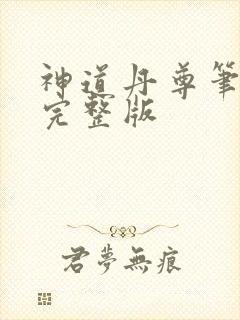 神道丹尊筆
完整版
君夢無痕